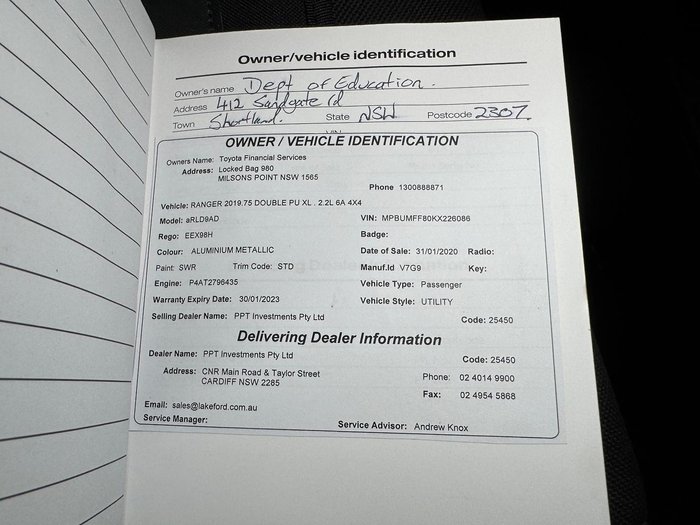 Owner/vehicle identification
Owner's name Dept of Education.
Address 412 Sandgate rd
Town Shortland. State NSW Postcode 2307.
VIN
OWNER / VEHICLE IDENTIFICATION
Owners Name: Toyota Financial Services
Address: Locked Bag 980
MILSONS POINT NSW 1565
Phone 1300888871
Vehicle: RANGER 2019.75 DOUBLE PU XL . 2.2L 6A 4X4
Model: aRLD9AD VIN: MPBUMFF80KX226086
Rego: EEX98H Badge:
Colour: ALUMINIUM METALLIC Date of Sale: 31/01/2020 Radio:
Paint: SWR Trim Code: STD Manuf.Id V7G9 Key:
Engine: P4AT2796435 Vehicle Type: Passenger
Warranty Expiry Date: 30/01/2023 Vehicle Style: UTILITY
Selling Dealer Name: PPT Investments Pty Ltd Code: 25450
Delivering Dealer Information
Dealer Name: PPT Investments Pty Ltd Code: 25450
Address: CNR Main Road & Taylor Street Phone: 02 4014 9900
CARDIFF NSW 2285
Fax: 02 4954 5868
Email: sales@lakeford.com.au
Service Manager: Service Advisor: Andrew Knox